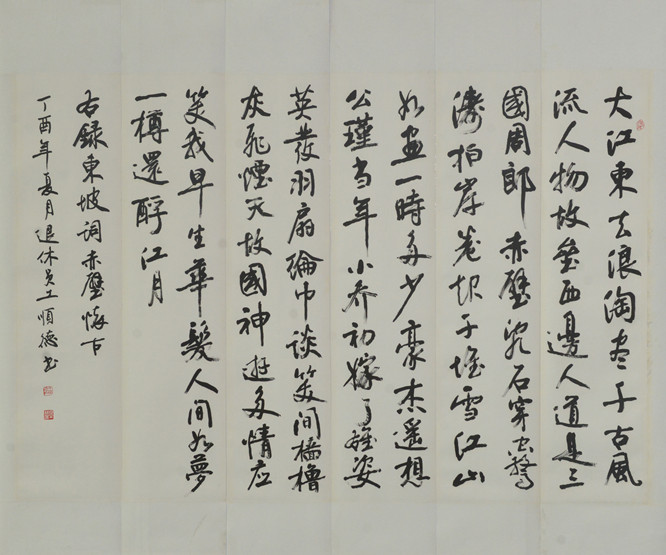 大江東去浪淘尽千古風
流人物故壘西邊人道是三
國周郎赤壁乱石穿空驚
濤拍岸卷起千堆雪江山
如畫一時多少豪杰遥想
公瑾当年小乔初嫁了雄姿
英發羽扇綸巾談笑間檣櫓
灰飛煙灭故國神遊多情应
笑我早生華髮人間如夢
一樽還酹江月
右録東坡詞赤壁懷古
丁酉年夏月退休員工順德书